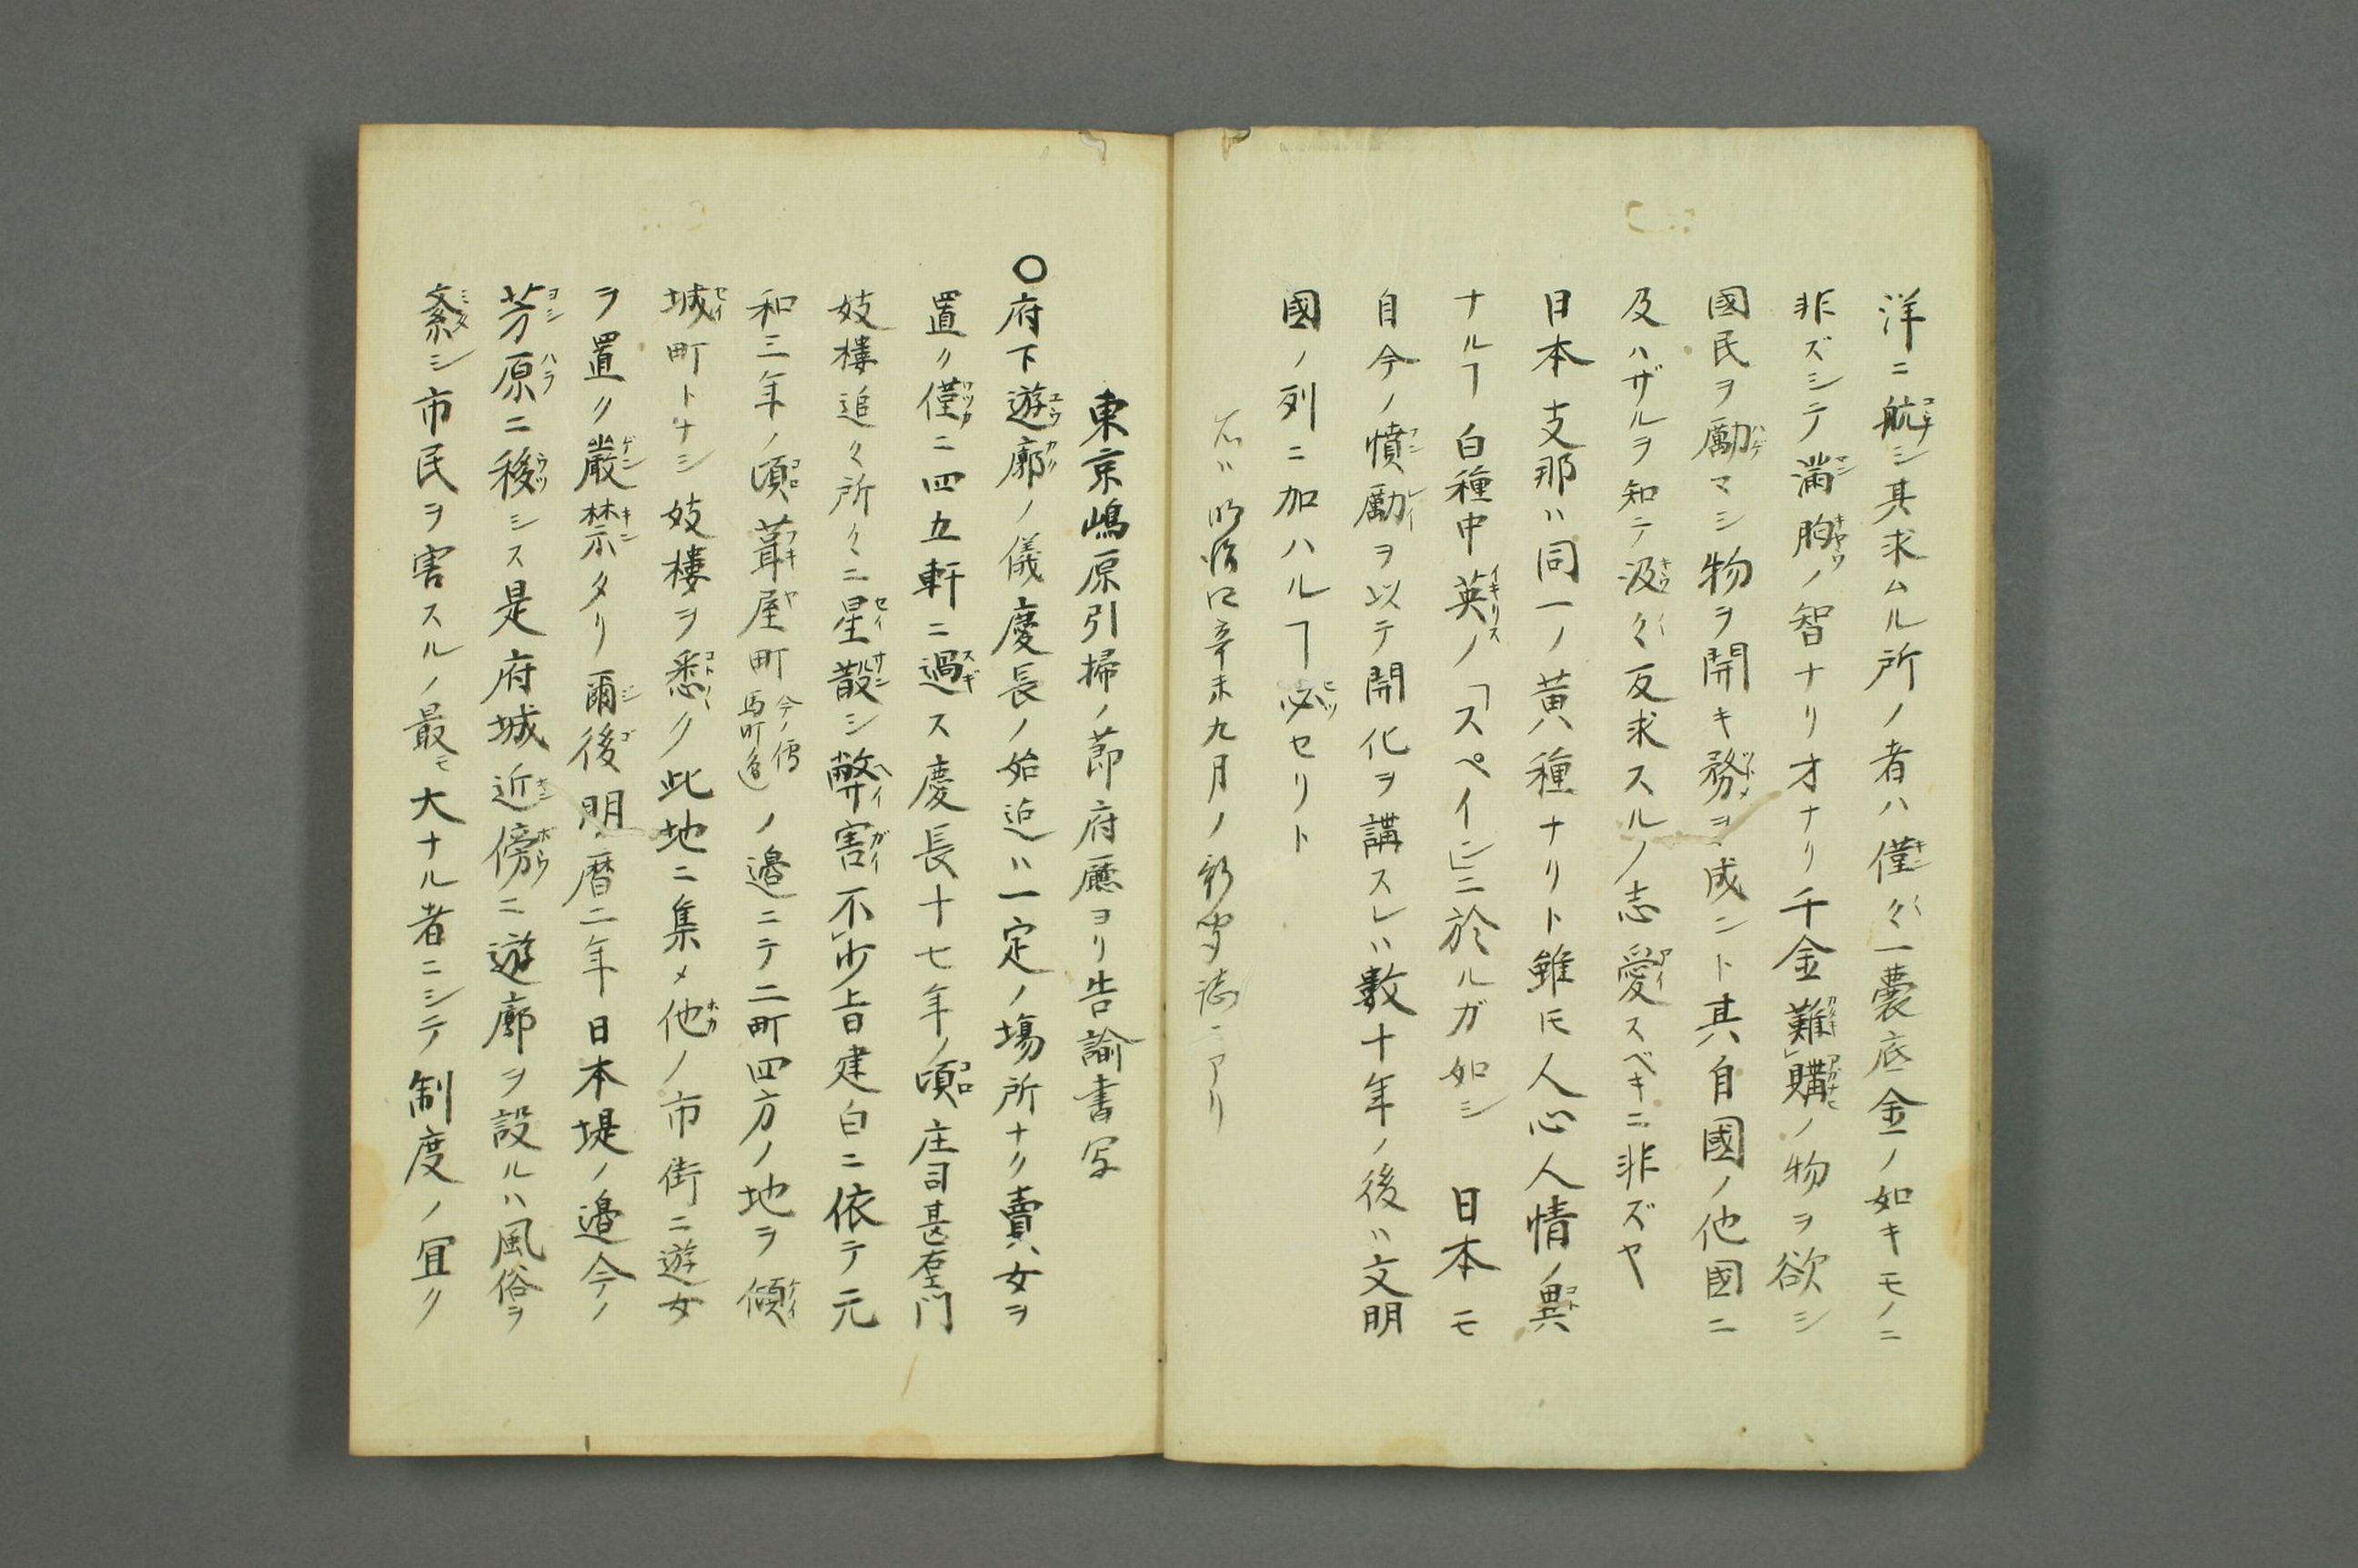 洋ニ航シ其求ムル所ノ者ハ僅々一嚢底金ノ如キモノニ
非ズシテ満胸ノ智ナリ才ナリ千金難購ノ物ヲ欲シ
國民ヲ勵マシ物ヲ開キ務ヲ成ント其自國ノ他國ニ
及ハザルヲ知テ汲々反求スルノ志愛スベキニ非ズヤ
日本支那ハ同一ノ黄種ナリト雖𪜈人心人情ノ異
ナルヿ白種中英ノ「スペイン」ニ於ルガ如シ 日本モ
自今ノ憤勵ヲ以テ開化ヲ講スレハ數十年ノ後ハ文明
國ノ列ニ加ハルヿ必セリト
右ハ明治四辛未九月ノ新聞誌ニアリ
東京嶋原引掃ノ節府廳ヨリ告諭書写
〇府下遊廓ノ儀慶長ノ始迄ハ一定ノ場所ナク賣女ヲ
置ク僅ニ四五軒ニ過ス慶長十七年ノ頃庄司甚右衛門
妓樓追々所々ニ星散シ弊害不少旨建白ニ依テ元
和三年ノ頃葺屋町今ノ傳馬町邉ノ邉ニテ二町四方ノ地ヲ傾
城町トナシ妓樓ヲ悉ク此地ニ集メ他ノ市街ニ遊女
ヲ置ク嚴禁タリ爾後明暦二年日本堤ノ邉今ノ
芳原ニ移シス是府城近傍ニ遊廓ヲ設ルハ風俗ヲ
紊シ市民ヲ害スルノ最モ大ナル者ニシテ制度ノ宜ク